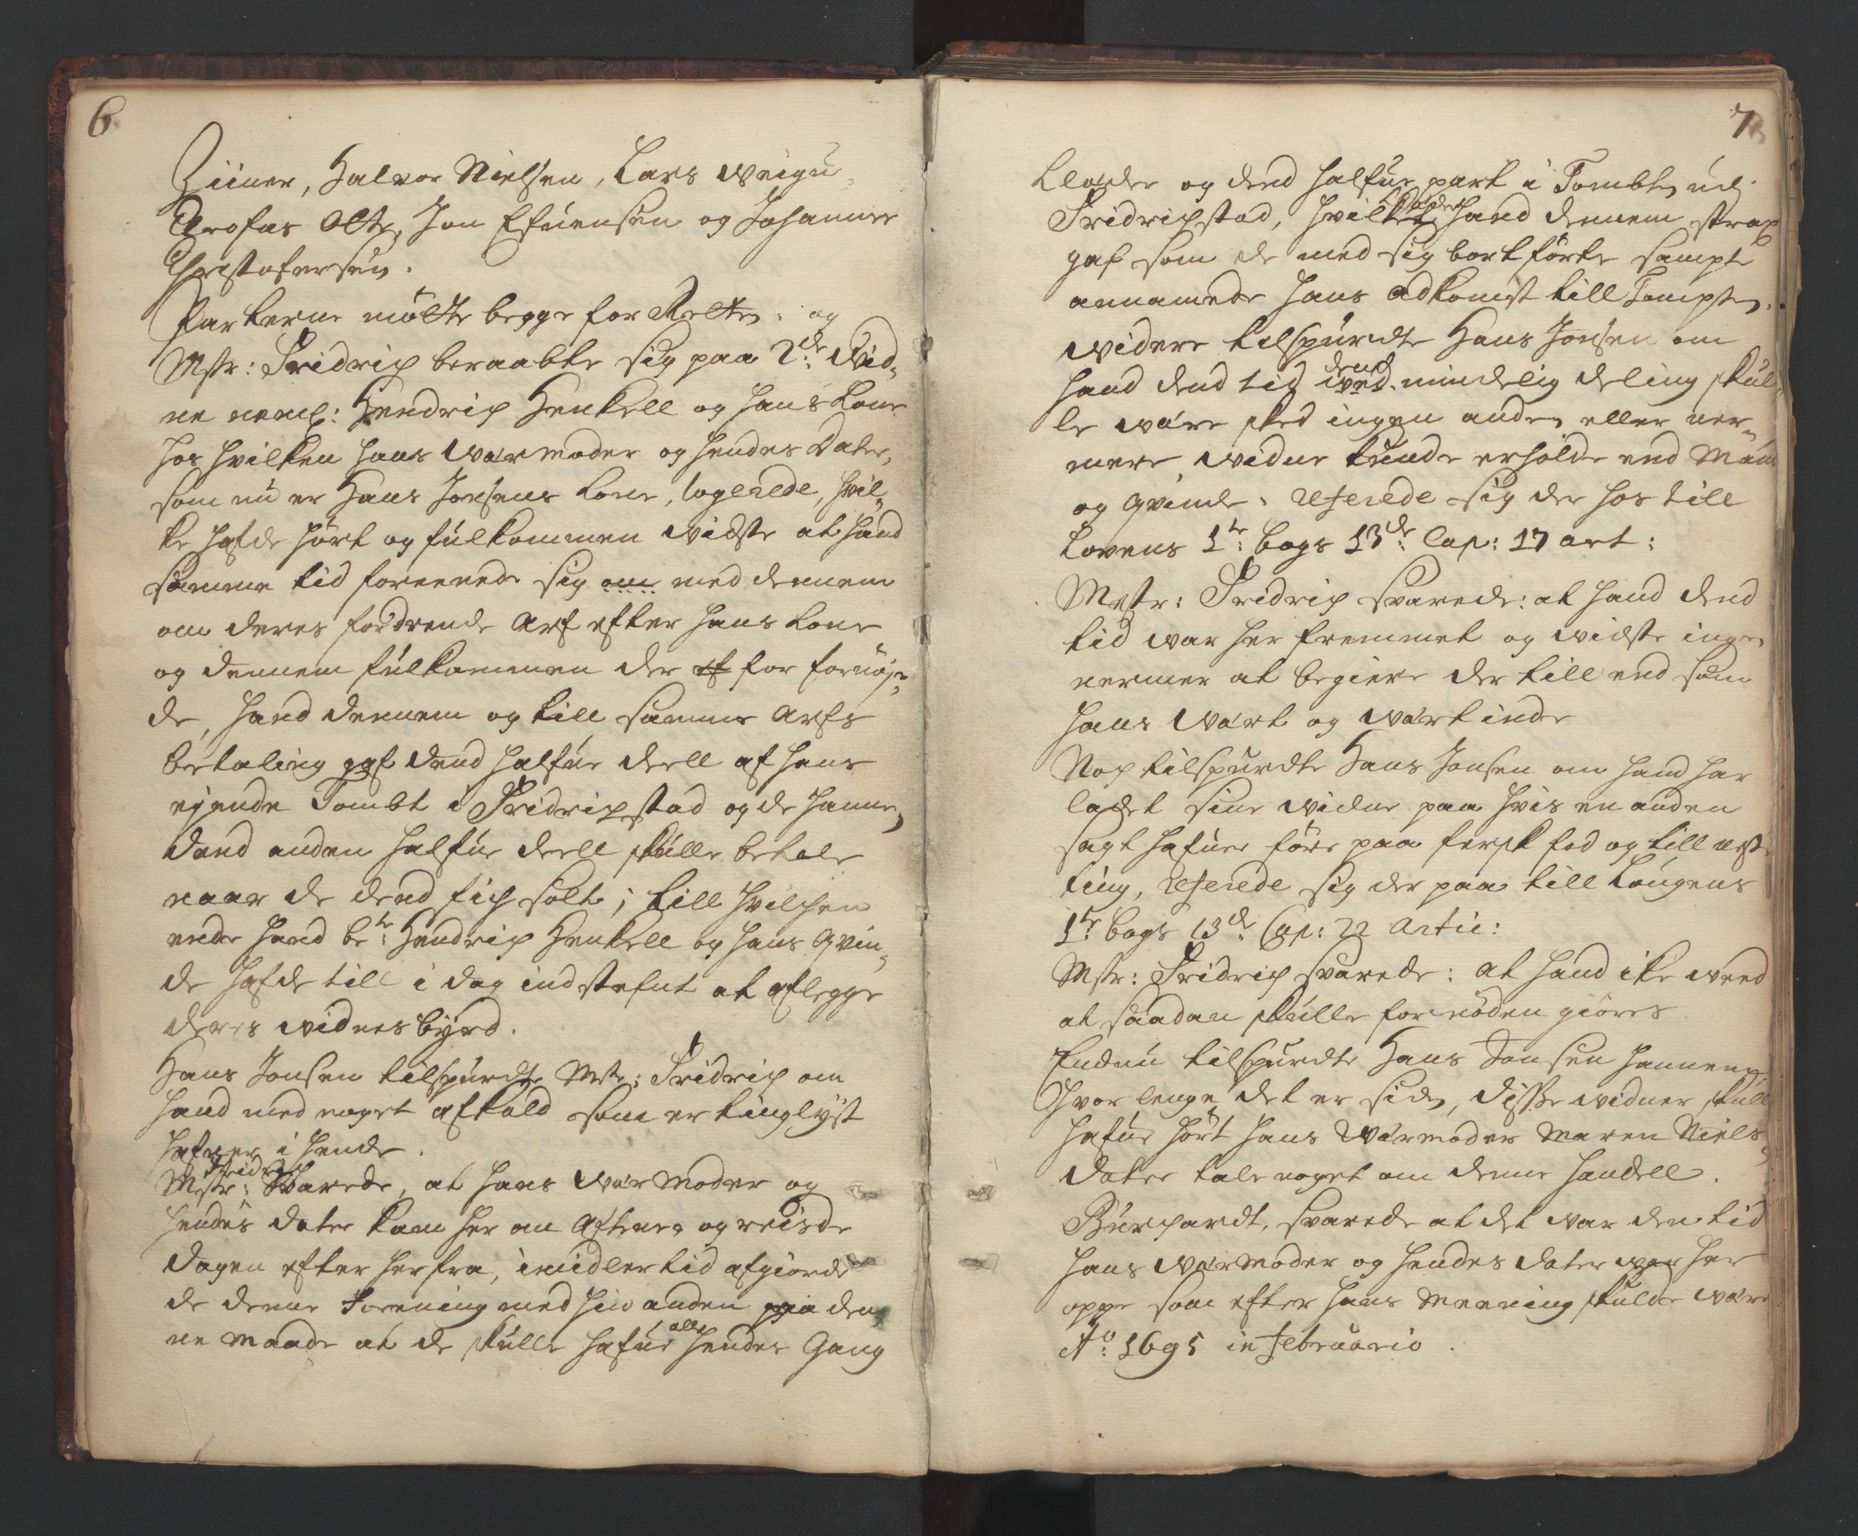 6
Ziiner, Halvor Nielsen, Lars
Olte, Jon Efuensen og Johannes
Christofersen.
Parterne møtte begge for Retten. og
Mstr: Fridrich beraabte sig paa 2de Vid-
ne neml: Hendrich Henkell og hans Kone
hos hvilken hans Wærmoder og hendes Dater,
som nu er Hans Jonsens Kone, logerede, hvil-
ke hafde hørt og fulkommen vidste at hand
samme tid foreenede sig om med dennem
om deres fordrende Arf efter hans Kone
og dennem fulkommen der af for fornøj-
de, hand dennem og till samme Arfs
betaling gaf dend halfue deell af hans
ejende Tombt i Fridrichstad og de hannem
dend anden halfue deell skulle betale
naar de dend fich solt; till hvilchen
ende hand bete: Hendrich Henkell og hans Qvin-
de hafde till i dag indstefnt at aflegge
deres widnesbyrd.
Hans Jonsen tilspurdte Mstr: Fridrich om
hand med noget afkald som er tinglyst
hafuer i hende.
Mstr: Fridrich Svarede, at hans Wærmoder og
hendes dater kom her om Aftenen og reisde
dagen efter herfra, imidlertid afgiorde
de denne Forening med hin anden paa den-
ne maade at de skulle hafue alle hendes Gang
7
Klæder og dend halfue part i Tombten ud i
Fridrichstad, hvilket Klæder hand dennem strax
gaf som de med sig bortførte sampt
annamede hans adkomst till Tompten.
widere tilspurdte Hans Jonsen om
hand dend tid dend ved mindelig deling skul-
le wære sked ingen anden eller ner-
mere widne kunde erholde end Mand
og Qvinde, refererede sig der hos till
Lovens 1te: bogs 13de: Cap: 17 art:
Mstr: Fridrich svarede: at hand dend
tid war her fremmet og widste ingen
nermer at begiere der till end som
hans Vært og Værtinde
Noch tilspurdte Hans Jonsen om hand har
ladet sine widne paa hvis en anden
sagt hafuer føre paa fersk fod og till nest
ting, refererede sig der paa till Lougens
1te bogs 13de: Cap: 22 Artic:
Mstr: Fridrich svarede: at hand ike weed
at saadan skulle fornøden giøres
Endnu tilspurdte Hans Jonsen hannem
hvor lenge det er siden, disse widner skull
hafue hørt hans Wærmoder Maren Niels
dater tale noget om denne handell.
Burchardt, svarede at det war den tid
hans Wærmoder og hendes dater war her
oppe som efter hans Meening skulde wære
Ao: 1695 in februario.